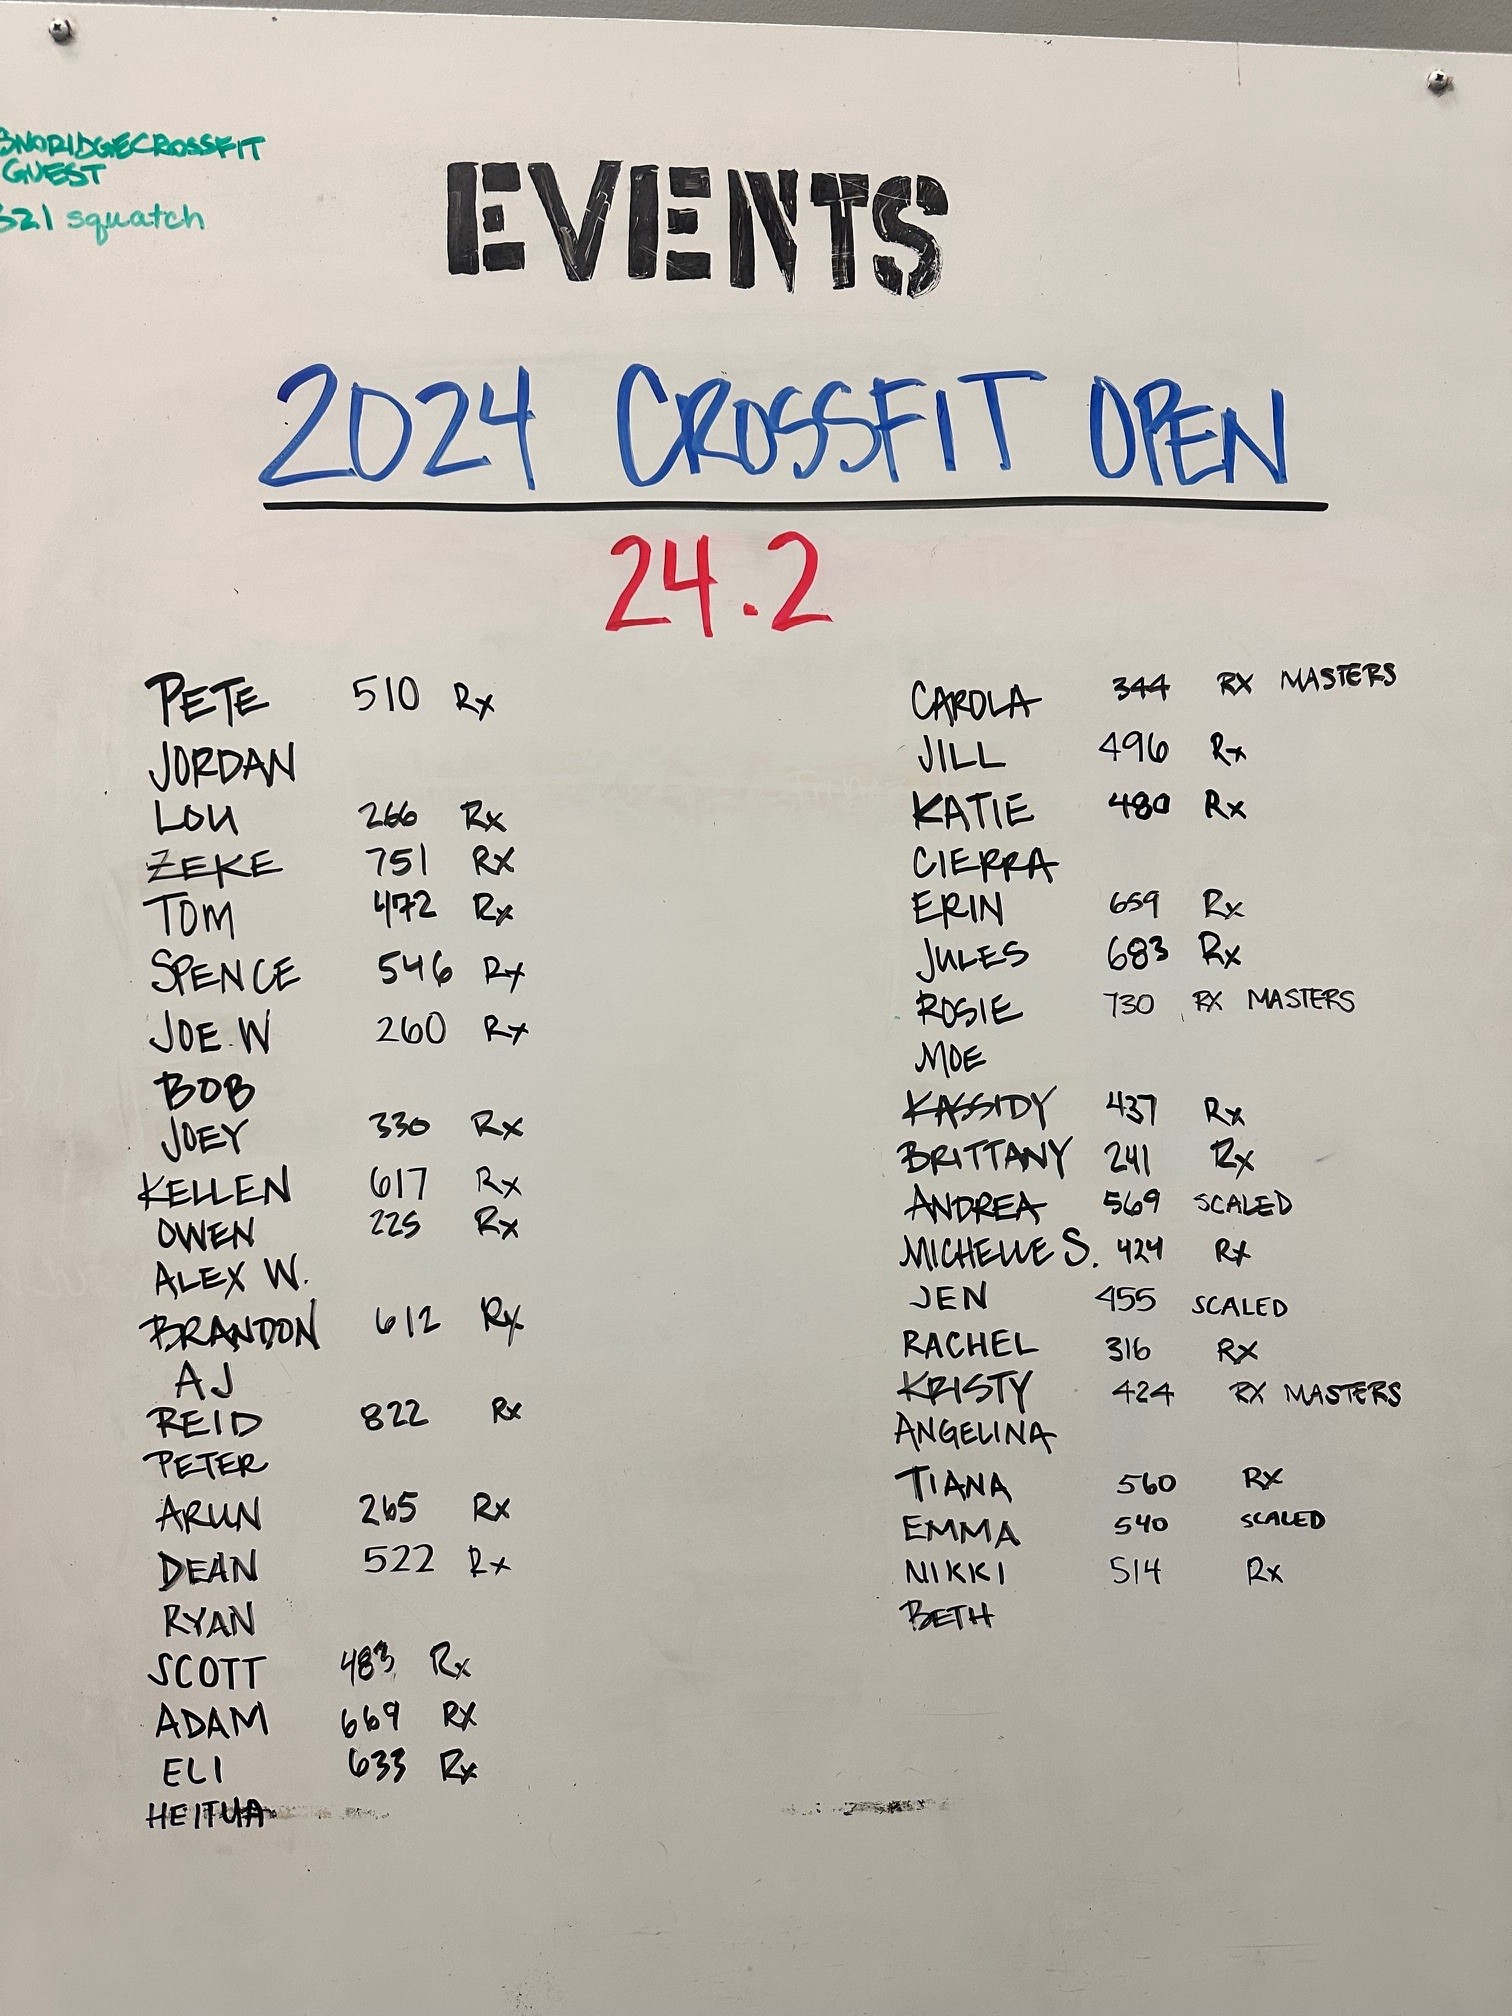 BNORIDGECROSSFIT
GUEST
321 squatch
EVENTS
2024 CROSSFIT OPEN
24.2
PETE 510 Rx
JORDAN
LOU 266 Rx
ZEKE 751 RX
TOM 472 Rx
SPENCE 546 Rx
JOE W 260 Rx
BOB
JOEY 330 Rx
KELLEN 617 Rx
OWEN 225 Rx
ALEX W.
BRANDON 612 Rx
AJ
REID 822 Rx
PETER
ARUN 265 Rx
DEAN 522 Rx
RYAN
SCOTT 483 Rx
ADAM 669 RX
ELI 633 Rx
HEITUA
CAROLA 344 RX MASTERS
JILL 496 Rx
KATIE 480 Rx
CIERRA
ERIN 659 Rx
JULES 683 Rx
ROSIE 730 RX MASTERS
MOE
KASSIDY 437 Rx
BRITTANY 241 Rx
ANDREA 569 SCALED
MICHELLE S. 424 Rx
JEN 455 SCALED
RACHEL 316 Rx
KRISTY 424 RX MASTERS
ANGELINA
TIANA 560 Rx
EMMA 540 SCALED
NIKKI 514 Rx
BETH